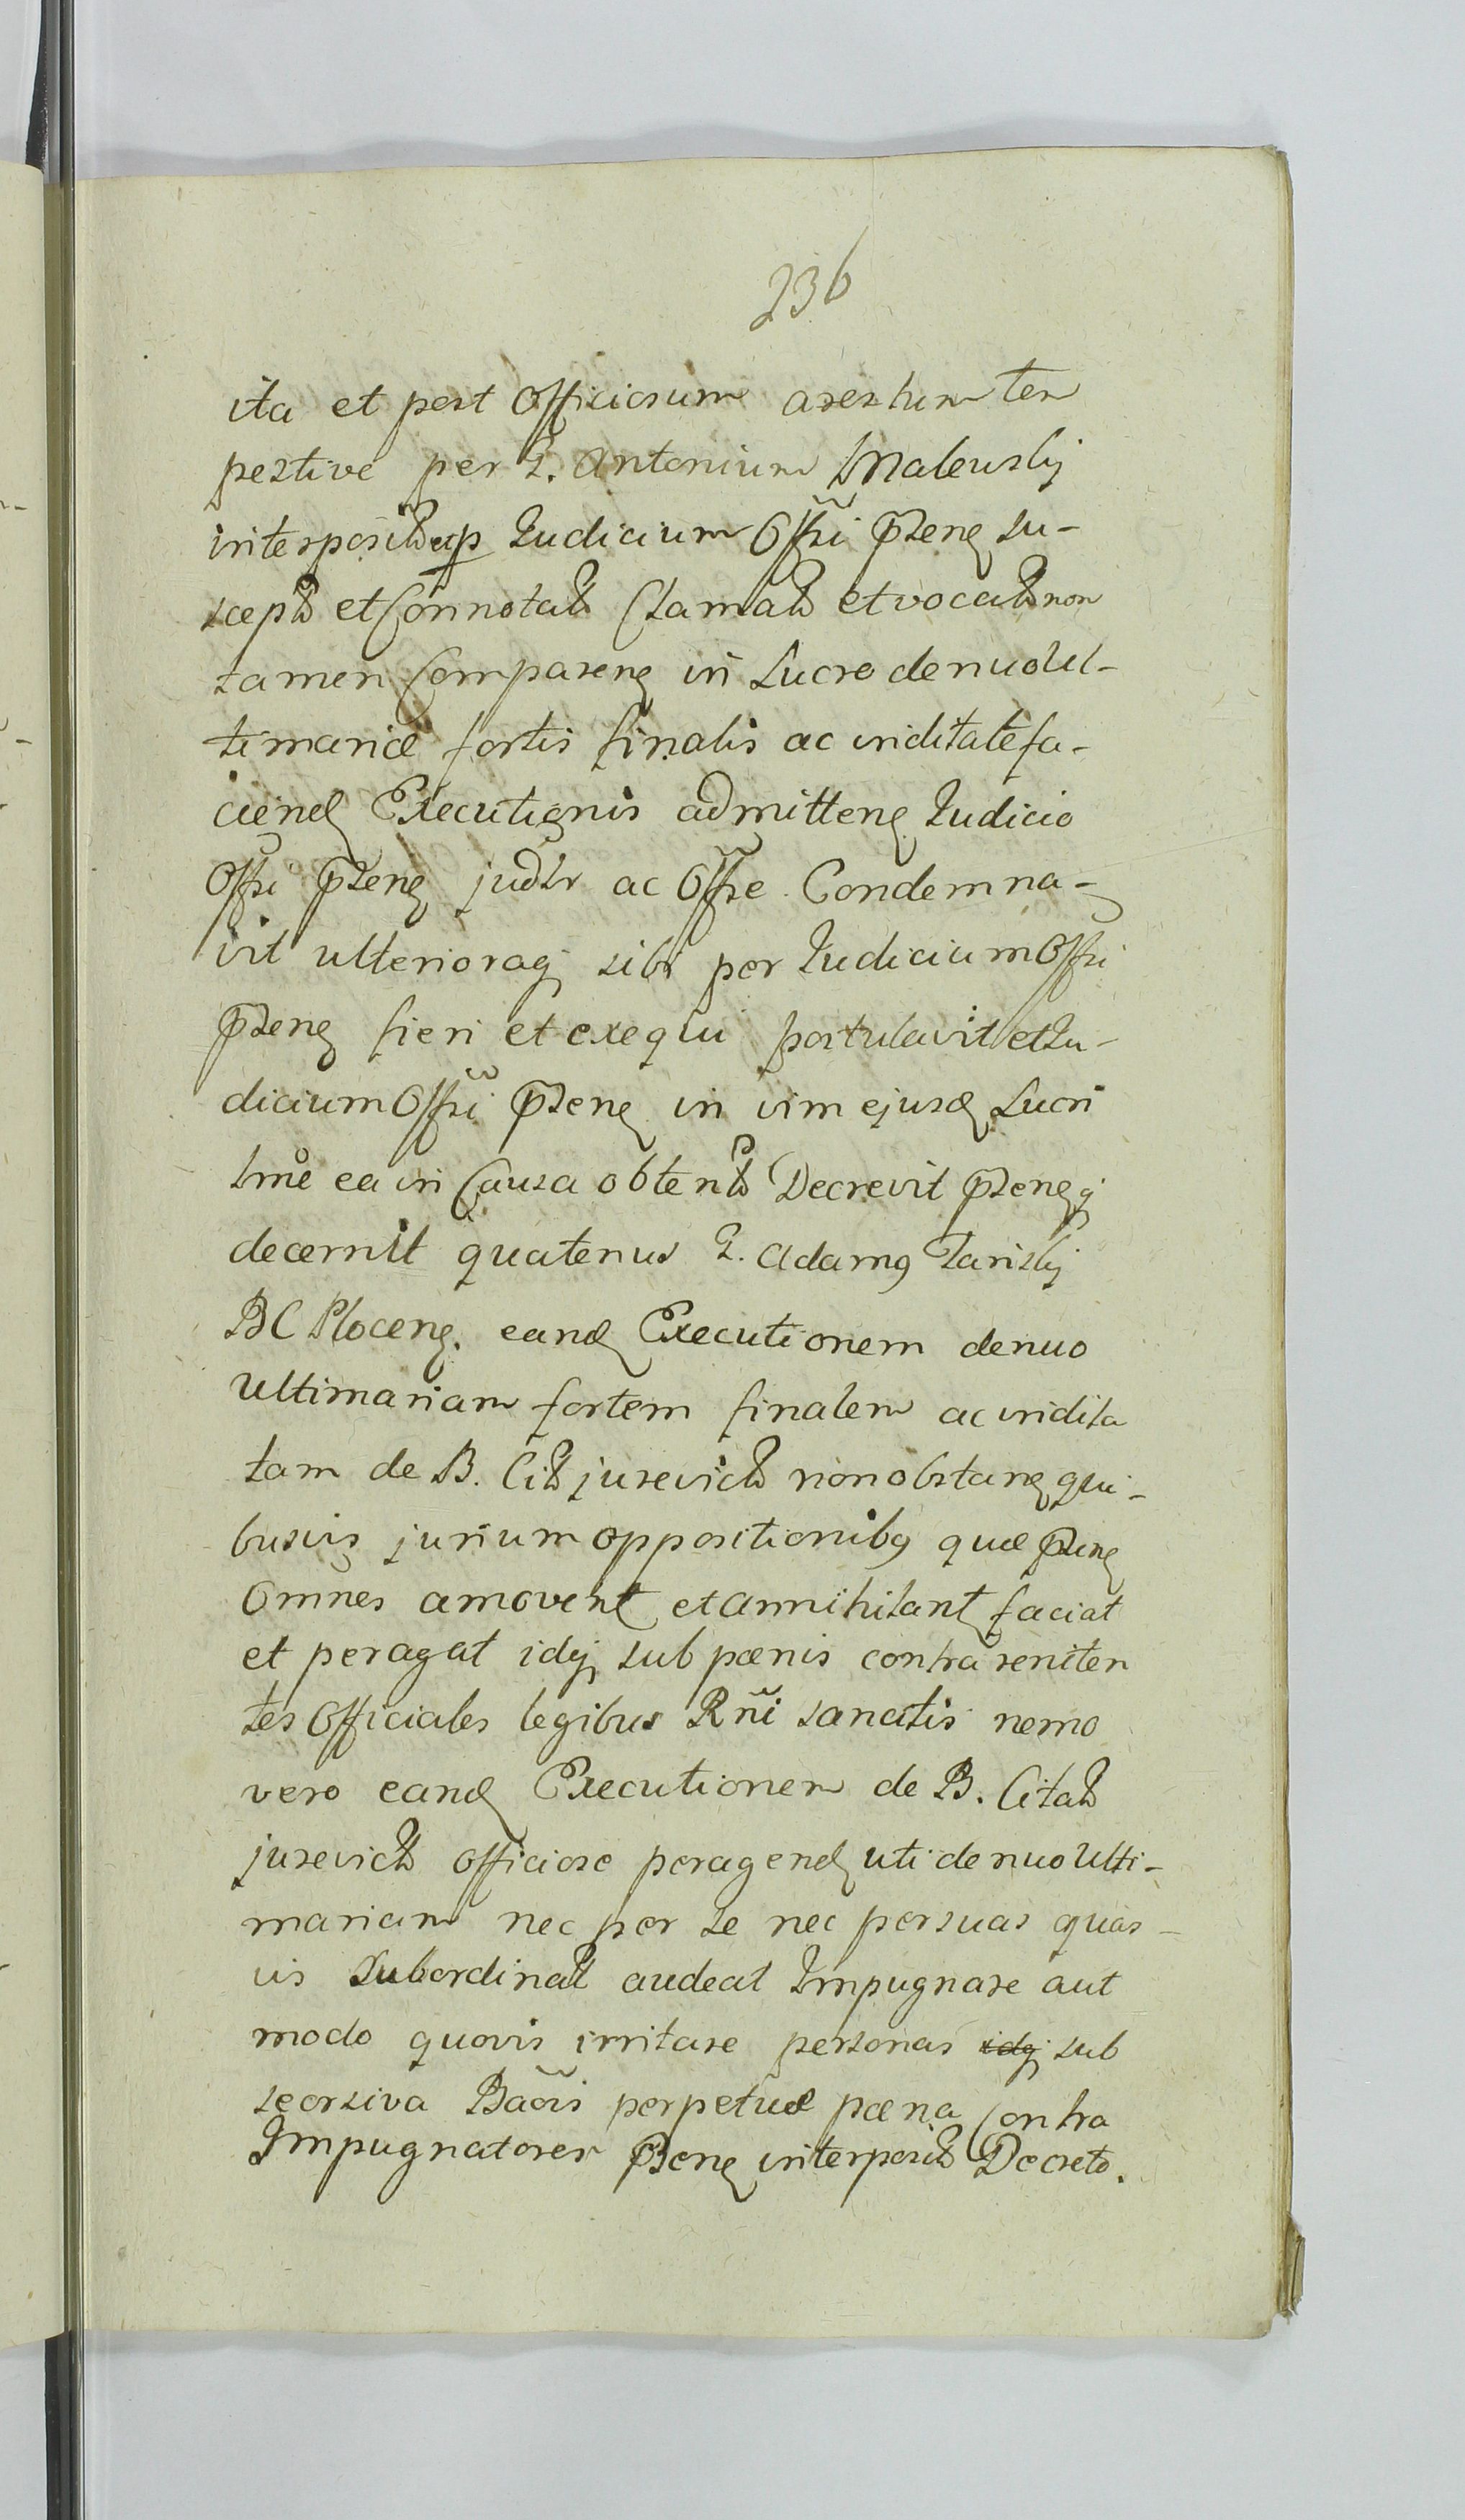 236
ita et post Officiosum arestum tem
pestive per G. Antonium Malewskj
interposit: ap Judicium Offri pñteng su-
scept: et Connotat: Clamat: et vocat: non
tamen Compareng in Lucro denuo Ul-
timariæ fortis finalis ac inditatefa-
ciend Executionis admitteng Judicio
Offri pñteng judlr ac Offse Condemna-
vit ulterioraq; sibi per Judicium Offri
pñteng fieri et exequi postulavit et Ju-
dicium Offri pñteng in vim ejusd Lucri
tmẽ ea in Causa obtent: Decrevit pñtengq;
decernit quatenus G. Adamg Zariskj
BC Ploceng. eand Executionem denuo
Ultimariam fortem finalem ac indita
tam de B. Cit: jurevict: non obstang qui-
busvis jurium oppositionibg quæ pñting
Omnes amovent et annihilant faciat
et peragat idq; sub pœnis contra reniten
tes Officiales legibus Rñi sancitis nemo
vero eand Executionem de B. Citat:
jurevict: officiose peragend uti denuo Ulti-
mariam nec per se nec per suas quas-
vis Subordinat: audeat Impugnare aut
modo quovis irritare personas idq; sub
seorsiva Bãõis perpetuæ pœna Contra
Impugnatores pñteng interposit: Decreto.